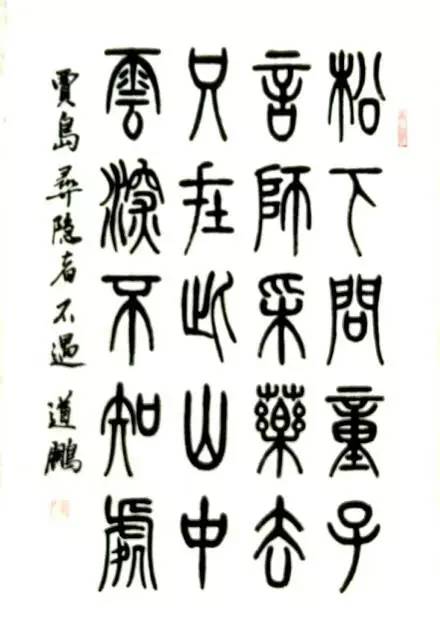 松下問童子
言師采藥去
只在此山中
雲深不知處
賈島尋隱者不遇 道鵬